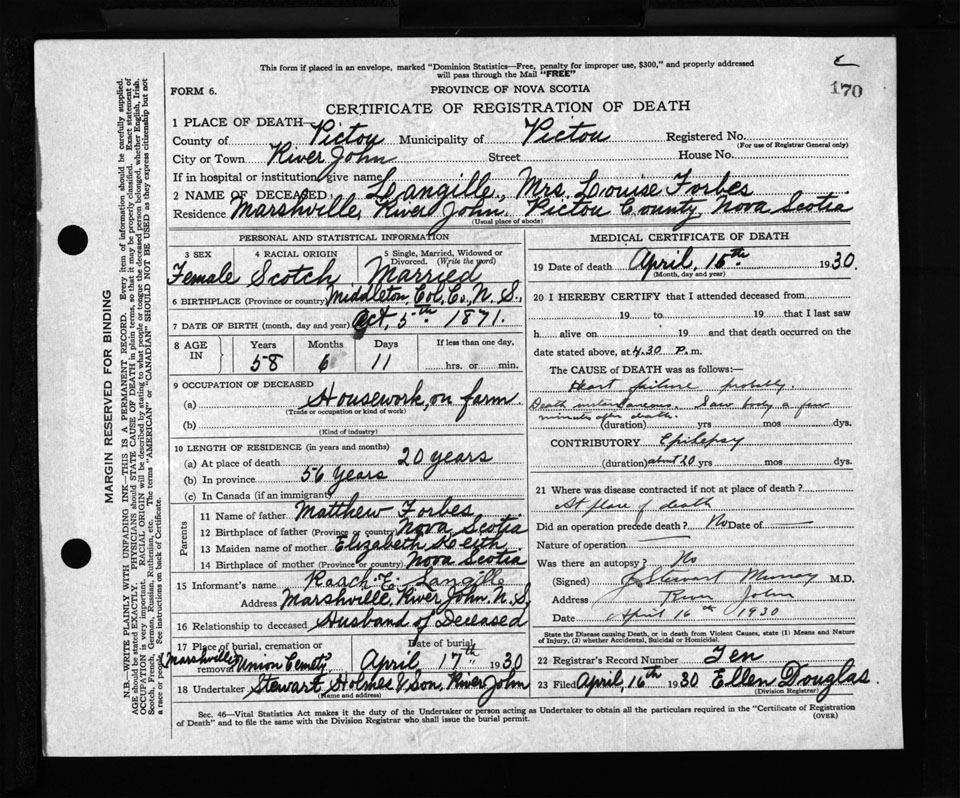 This form if placed in an envelope, marked "Dominion Statistics—Free, penalty for improper use, $300," and properly addressed
will pass through the Mail "FREE"
170
FORM 6.
PROVINCE OF NOVA SCOTIA
CERTIFICATE OF REGISTRATION OF DEATH
1 PLACE OF DEATH—
County of Pictou Municipality of Pictou Registered No.
(For use of Registrar General only)
City or Town River John Street House No.
If in hospital or institution give name
2 NAME OF DECEASED Langille, Mrs. Louise Forbes
Residence Marshville, River John, Pictou County, Nova Scotia
(Usual place of abode)
PERSONAL AND STATISTICAL INFORMATION
3 SEX 4 RACIAL ORIGIN 5 Single, Married, Widowed or
Divorced. (Write the word)
Female Scotch Married
6 BIRTHPLACE (Province or country) Middleton, Col. Co., N. S.,
7 DATE OF BIRTH (month, day and year) Oct, 5th 1871.
8 AGE IN Years Months Days If less than one day,
58 6 11 hrs. or min.
9 OCCUPATION OF DECEASED
(a) Housework, on farm.
(Trade or occupation or kind of work)
(b)
(Kind of industry)
10 LENGTH OF RESIDENCE (in years and months)
(a) At place of death 20 years
(b) In province 56 years
(c) In Canada (if an immigrant)
Parents
11 Name of father Matthew Forbes
12 Birthplace of father (Province or country) Nova Scotia
13 Maiden name of mother Elizabeth Keith
14 Birthplace of mother (Province or country) Nova Scotia
15 Informant's name E. Langille
Address Marshville, River John, N. S.
16 Relationship to deceased Husband of Deceased
17 Place of burial, cremation or Date of burial
removal (Marshville) Union Cemety April, 17th 1930
18 Undertaker Stewart Holmes & Son, River John
(Name and address)
MEDICAL CERTIFICATE OF DEATH
19 Date of death April, 15th 1930.
(Month, day and year)
20 I HEREBY CERTIFY that I attended deceased from
19 to 19 that I last saw
h alive on 19 and that death occurred on
date stated above, at 4.30 P. m.
The CAUSE of DEATH was as follows:—
Heart failure probably.
Death instantaneous. Saw body a few
minutes after death.
(duration) yrs mos dys.
CONTRIBUTORY Epilepsy
(duration) about 20 yrs mos dys.
21 Where was disease contracted if not at place of death?
At place of death
Did an operation precede death? No Date of
Nature of operation
Was there an autopsy? No
(Signed) J Stewart Murray M.D.
Address River John
Date April 16th 1930
State the Disease causing Death, or in death from Violent Causes, state (1) Means and Nature
of Injury, (2) whether Accidental, Suicidal or Homicidal.
22 Registrar's Record Number Ten
23 Filed April, 16th 1930 Ellen Douglas.
(Division Registrar)
Sec. 46—Vital Statistics Act makes it the duty of the Undertaker or person acting as Undertaker to obtain all the particulars required in the "Certificate of Registration
of Death" and to file the same with the Division Registrar who shall issue the burial permit.
(OVER)
MARGIN RESERVED FOR BINDING
N.B.—WRITE PLAINLY WITH UNFADING INK—THIS IS A PERMANENT RECORD. Every item of information should be carefully supplied.
AGE should be stated EXACTLY. PHYSICIANS should STATE CAUSE OF DEATH in plain terms, so that it may be properly classified. Exact statement of
OCCUPATION is very important. RACIAL ORIGIN will be described by stating to what people or tongue the deceased person belonged, whether English, Irish,
Scotch, French, German, Russian, Ruthenian, etc. The terms "AMERICAN" or "CANADIAN" SHOULD NOT BE USED as they express citizenship but not
a race or people. See instructions on back of Certificate.